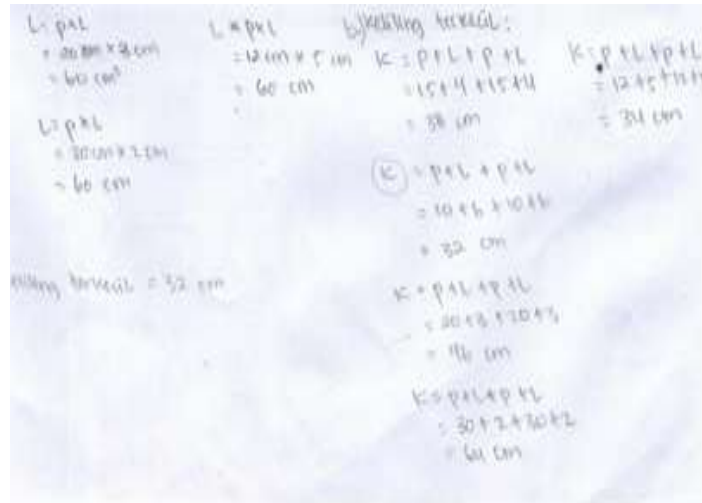 L = p × L
= 20 cm × 3 cm
= 60 cm²
L = p × L
= 30 cm × 2 cm
= 60 cm
keliling terkecil = 32 cm
L = p × L
= 12 cm × 5 cm
= 60 cm
b) keliling terkecil :
K = p + L + p + L
= 15 + 4 + 15 + 4
= 38 cm
K = p + L + p + L
= 10 + 6 + 10 + 6
= 32 cm
K = p + L + p + L
= 20 + 3 + 20 + 3
= 46 cm
K = p + L + p + L
= 30 + 2 + 30 + 2
= 64 cm
K = p + L + p + L
= 12 + 5 + 12 +
= 34 cm